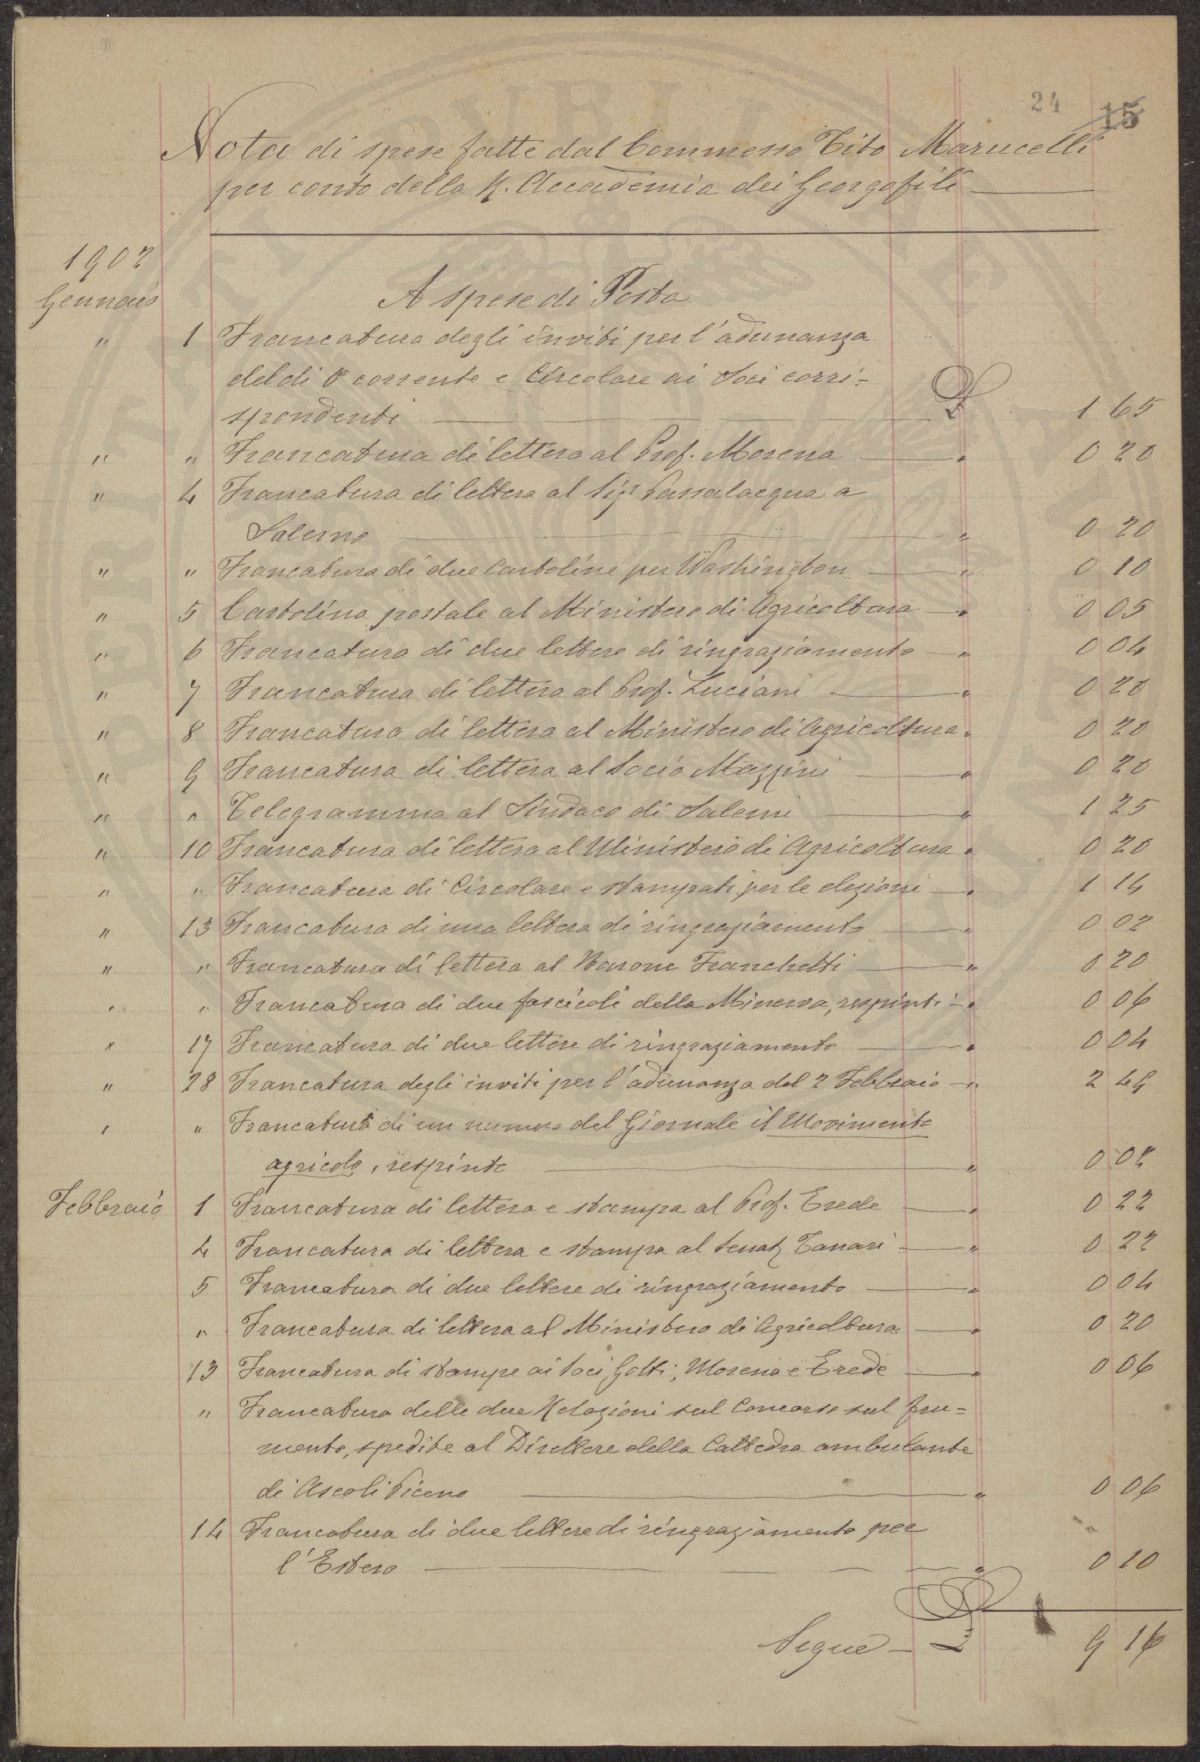 24 15
Nota di spese fatte dal Commesso Tito Marucelli
per conto della R. Accademia dei Georgofili
1902
Gennaio A spese di Posta
" 1 Francatura degli inviti per l'adunanza
del dì 5 corrente e Circolare ai Soci corri=
spondenti £ 1 65
" " Francatura di lettera al Prof. Morena " 0 20
" 4 Francatura di lettera al Sigr Passalacqua a
Salerno " 0 20
" " Francatura di due Cartoline per Washington " 0 10
" 5 Cartolina postale al Ministero di Agricoltura " 0 05
" 6 Francatura di due lettere di ringraziamento " 0 04
" 7 Francatura di lettera al Prof. Luciani " 0 20
" 8 Francatura di lettera al Ministero di Agricoltura " 0 20
" 9 Francatura di lettera al Socio Mazzini " 0 20
" " Telegramma al Sindaco di Salemi " 1 25
" 10 Francatura di lettera al Ministero di Agricoltura " 0 20
" " Francatura di Circolare e stampati per le elezioni " 1 14
" 13 Francatura di una lettera di ringraziamento " 0 02
" " Francatura di lettera al Barone Franchetti " 0 20
" " Francatura di due fascicoli della Minerva, respinti " 0 06
" 17 Francatura di due lettere di ringraziamento " 0 04
" 28 Francatura degli inviti per l'adunanza del 2 Febbraio " 2 49
" " Francatura di un numero del Giornale il Movimento
agricolo, respinto " 0 02
Febbraio 1 Francatura di lettera e stampa al Prof. Erede " 0 22
4 Francatura di lettera e stampa al Senat. Tanari " 0 22
5 Francatura di due lettere di ringraziamento " 0 04
" Francatura di lettera al Ministero di Agricoltura " 0 20
13 Francatura di stampe ai Soci Gotti, Morena e Erede " 0 06
" Francatura delle due Relazioni sul Concorso sul fru=
mento, spedite al Direttore della Cattedra ambulante
di Ascoli Piceno " 0 06
14 Francatura di due lettere di ringraziamento per
l'Estero " 0 10
Segue £ 9 16